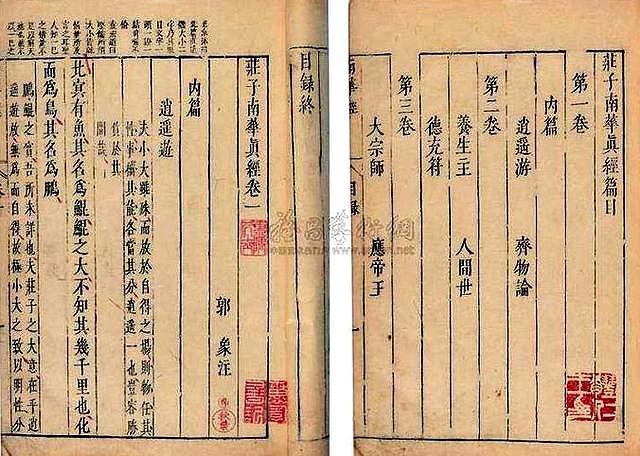 莊子南華真經篇目
第一卷
內篇
逍遥游
齊物論
第二卷
養生主
人間世
德充符
第三卷
大宗師
應帝王
目録
目録終
莊子南華真經卷一
郭象注
內篇
逍遥遊
夫小大雖殊而放於自得之塲則物任其
性事稱其能各當其分逍遥一也豈容勝
負於其
間哉
北㝠有魚其名為鯤鯤之大不知其幾千里也化
而為鳥其名為鵬
鵬鯤之實吾所未詳也夫莊子之大意在乎逍
遥遊放無為而自得故極小大之致以明性分